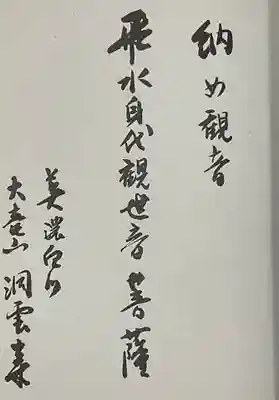 納め観音
飛水身代観世音菩薩
美濃白川
大山 洞雲